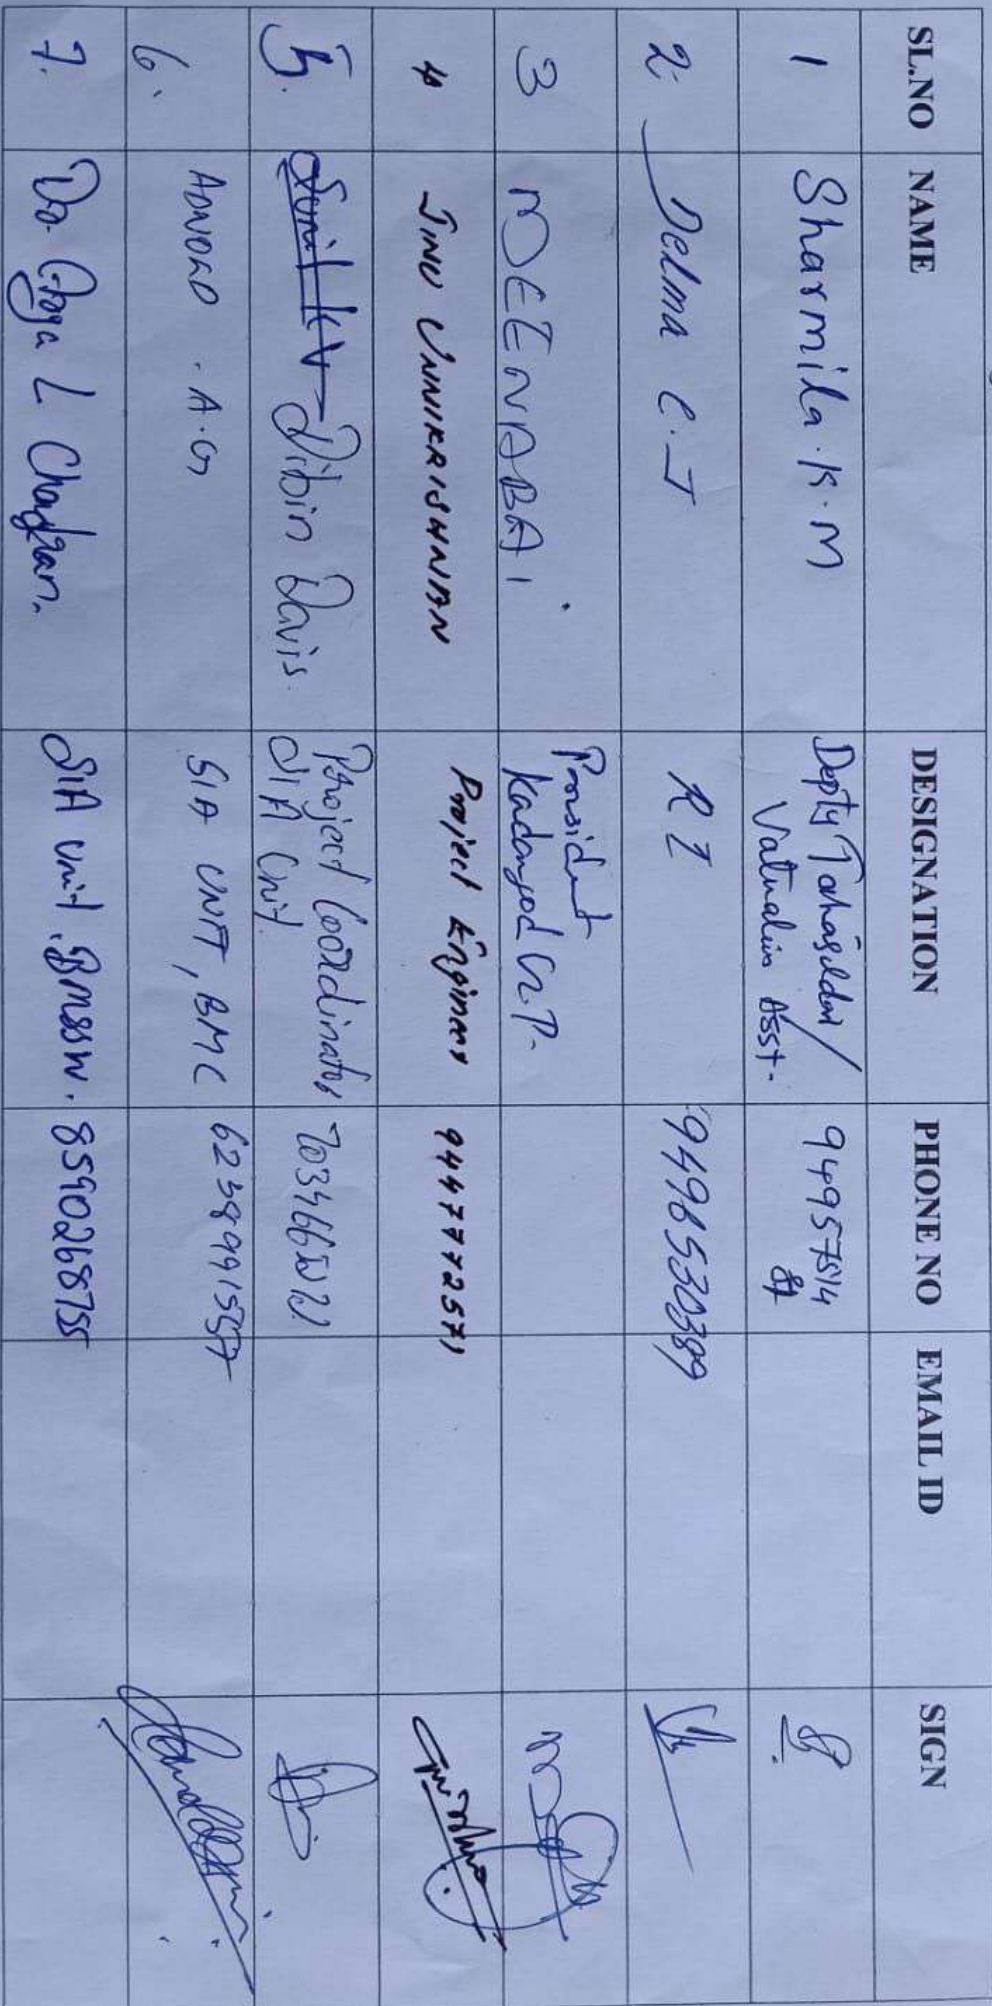 SL.NO NAME DESIGNATION PHONE NO EMAIL ID SIGN
1 Sharmila.K.M Depty Tahasildar/ 9495 7514
Valuation Asst. 87
2. Delma C.J R I 9496530389
3 MEENABAI President
Kadangod G.P.
4 JINU UNNIKRISHNAN Project Engineer 9447772571
5. Sunil K V Dibin Davis. Project Coordinator
SIA Unit.
6. A.G SIA UNIT, BMC 6238991557
7. Dr. L Chandran. SIA Unit. 8590268755